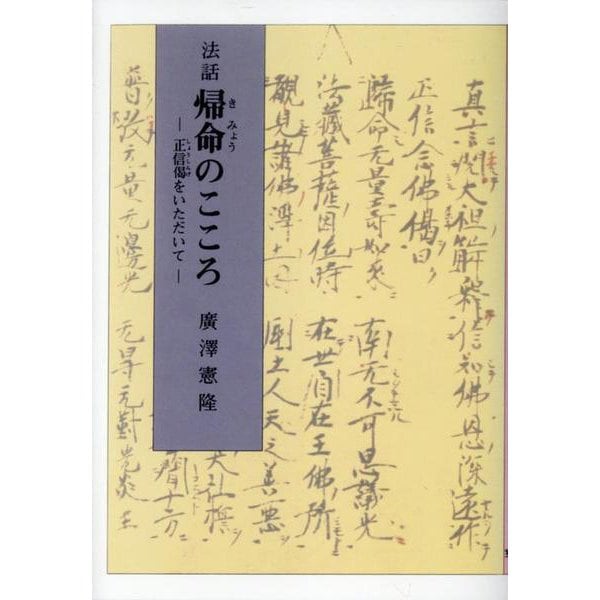 法話 帰命のこころ
き みょう
―正信偈をいただいて―
しょうしんげ
廣澤憲隆
大祖解釋信知佛恩深遠作
正信念佛偈曰
歸命无量壽如来
南无不可思議光
法藏菩薩因位時
在世自在王佛所
覩見諸佛淨土因
國土人天之善惡
普放无量无邊光
无㝵无對光炎王